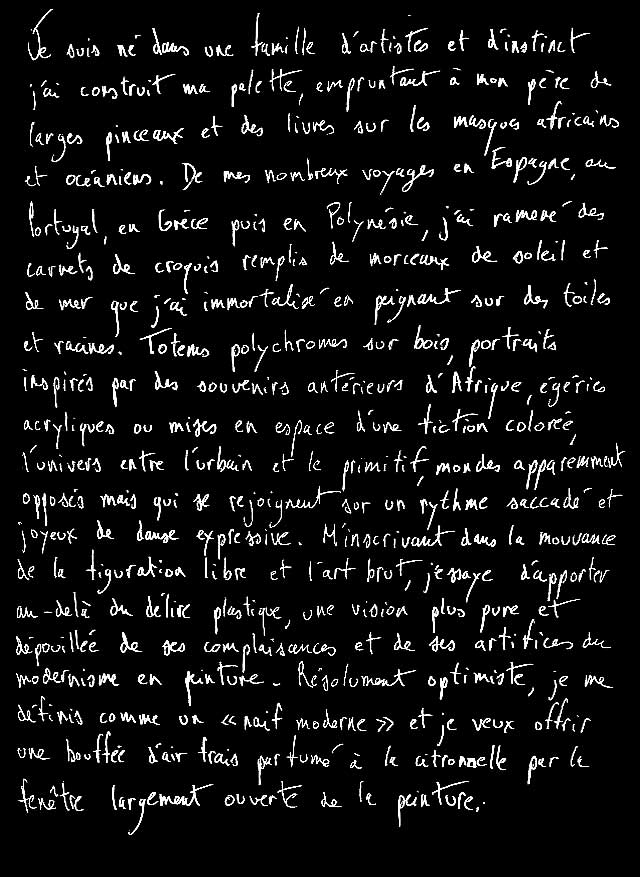 Je suis né dans une famille d'artistes et d'instinct
j'ai construit ma palette, empruntant à mon père de
larges pinceaux et des livres sur les masques africains
et océaniens. De mes nombreux voyages en Espagne, au
Portugal, en Grèce puis en Polynésie, j'ai ramené des
carnets de croquis remplis de morceaux de soleil et
de mer que j'ai immortalisé en peignant sur des toiles
et racines. Totems polychromes sur bois, portraits
inspirés par des souvenirs antérieurs d'Afrique, égéries
acryliques ou mises en espace d'une fiction colorée,
l'univers entre l'urbain et le primitif, mondes apparemment
opposés mais qui se rejoignent sur un rythme saccadé et
joyeux de danse expressive. M'inscrivant dans la mouvance
de la figuration libre et l'art brut, j'essaye d'apporter
au-delà du délire plastique, une vision plus pure et
dépouillée de ses complaisances et de ses artifices du
modernisme en peinture. Résolument optimiste, je me
définis comme un « naïf moderne » et je veux offrir
une bouffée d'air frais parfumé à la citronnelle par la
fenêtre largement ouverte de la peinture.